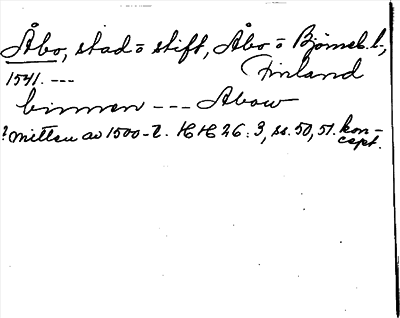 Åbo, stad o stift, Åbo o Björneb. l.,
Finland
1541. ---
binnen --- Abow
? mitten av 1500-t. HH 26:3, ss. 50, 51. kon-
cept.